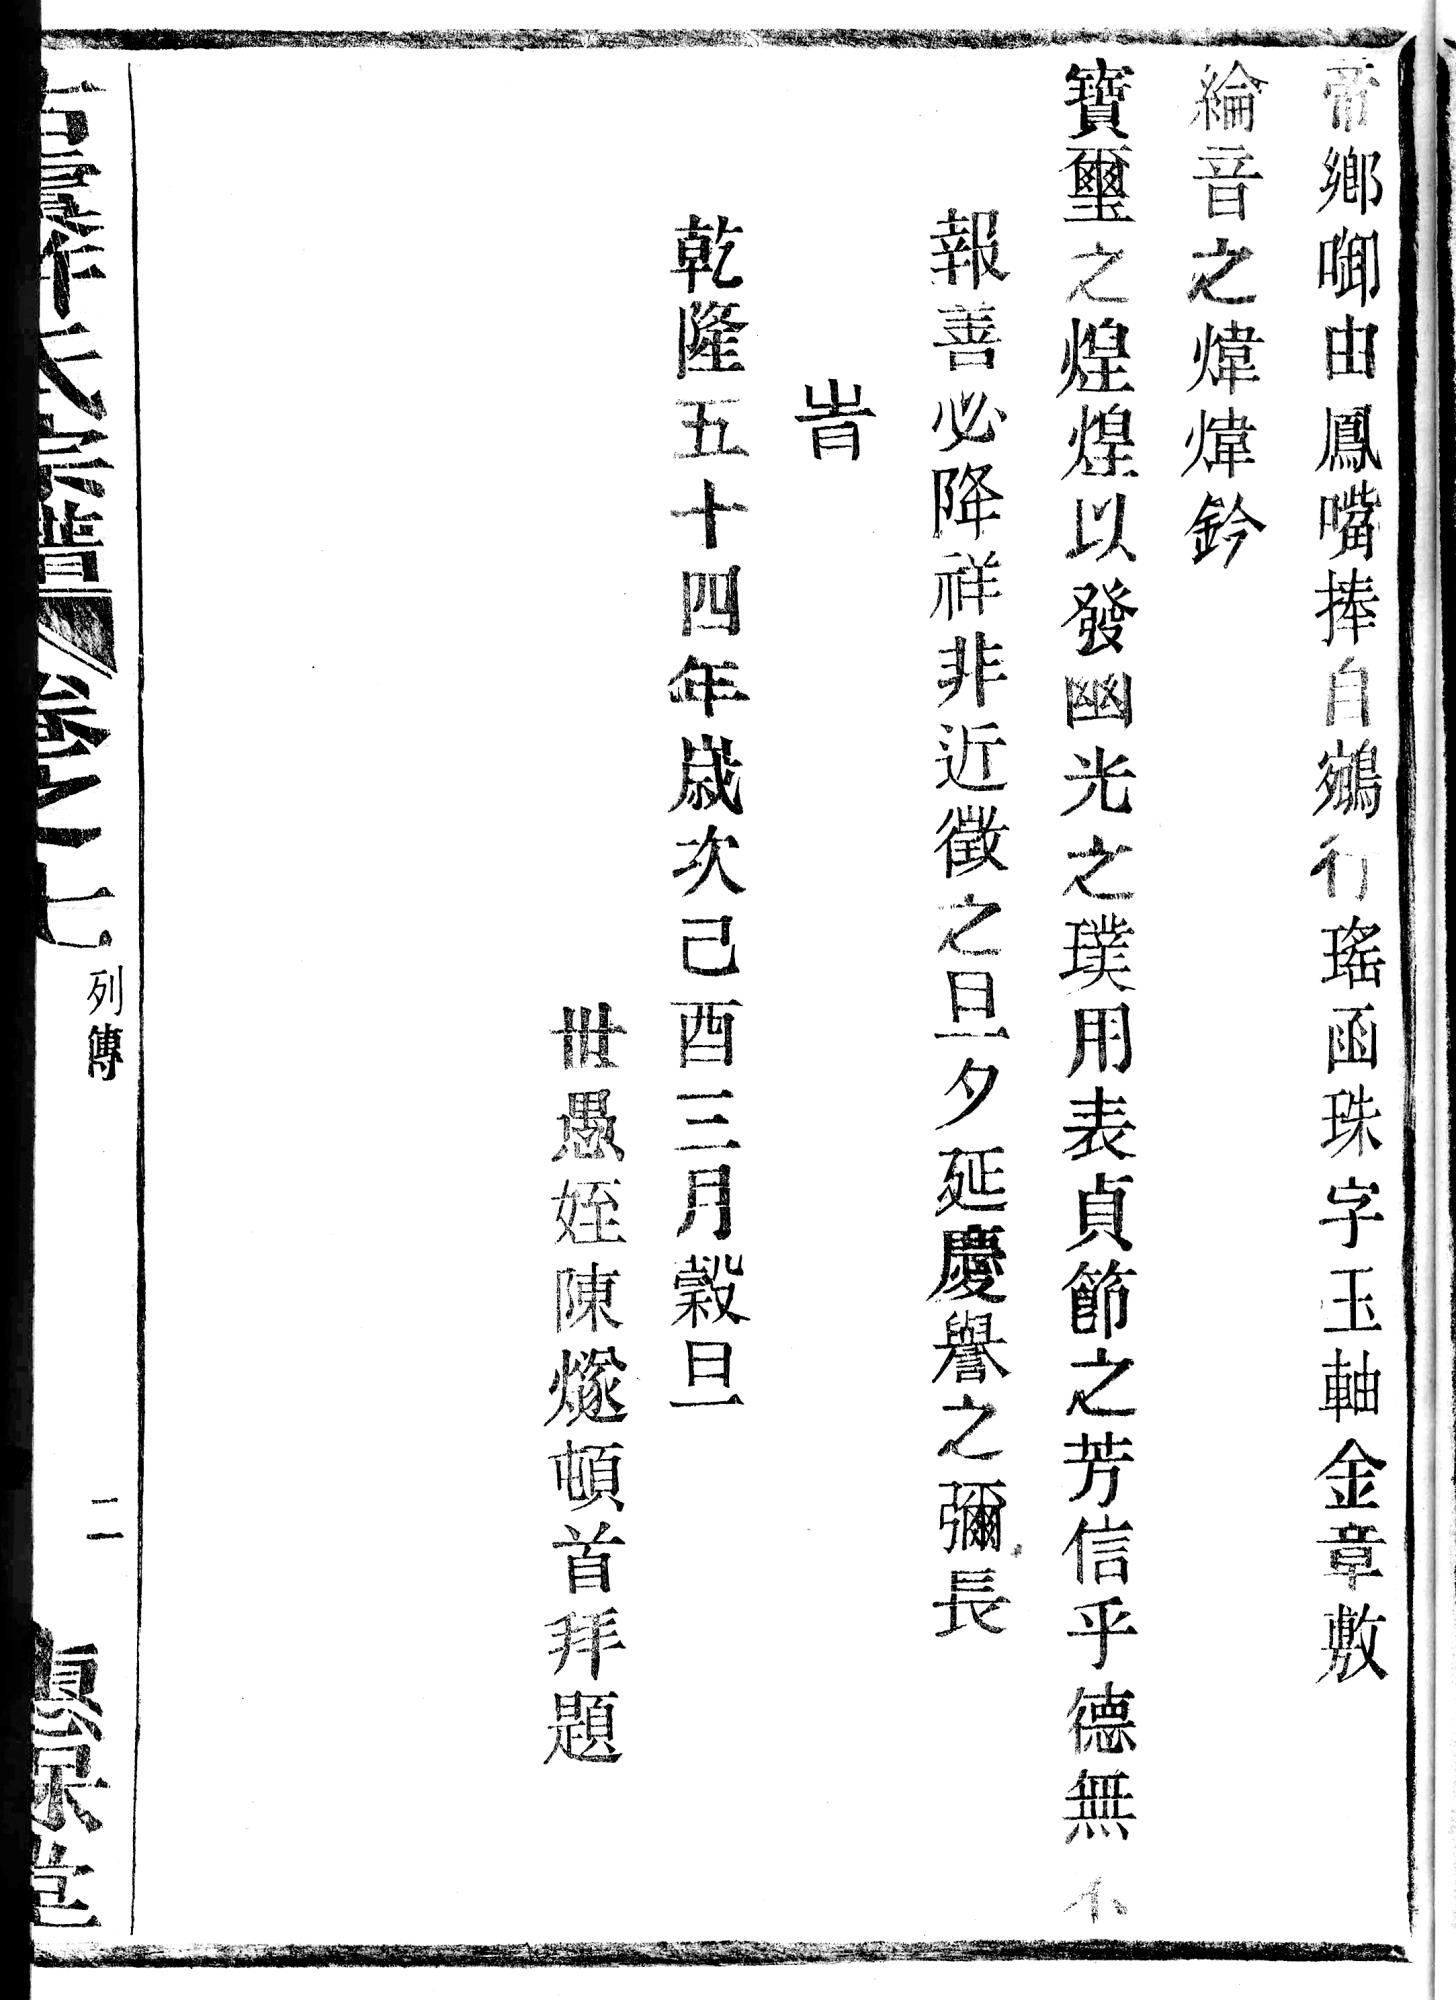 帝鄉啣由鳳嘴捧自鵷行瑤函珠字玉軸金章敷
綸音之煒煒鈐
寶璽之煌煌以發幽光之璞用表貞節之芳信乎德無不
報善必降祥非近徵之旦夕延慶譽之彌長
旹
乾隆五十四年歲次己酉三月穀旦
世愚姪陳燧頓首拜題
許氏宗譜 卷之七 列傳 二